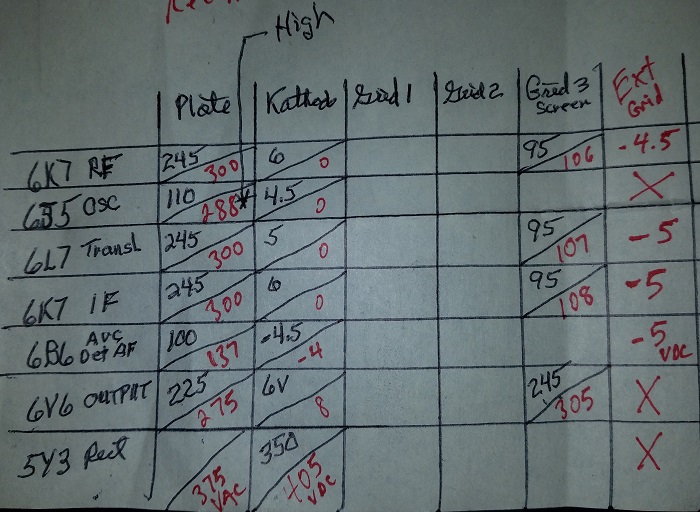 High
Plate Kathod Grid 1 Grid 2 Grid 3 Screen Ext Grid
6K7 RF 245 300 6 0 95 106 -4.5
6J5 OSC 110 288* 4.5 0 X
6L7 Transl 245 300 5 0 95 107 -5
6K7 IF 245 300 6 0 95 108 -5
6B6 AVC Det AF 100 137 -4.5 -4 -5 VDC
6V6 OUTPUT 225 275 6V 8 245 305 X
5Y3 Rect 375 VAC 350 405 VDC X